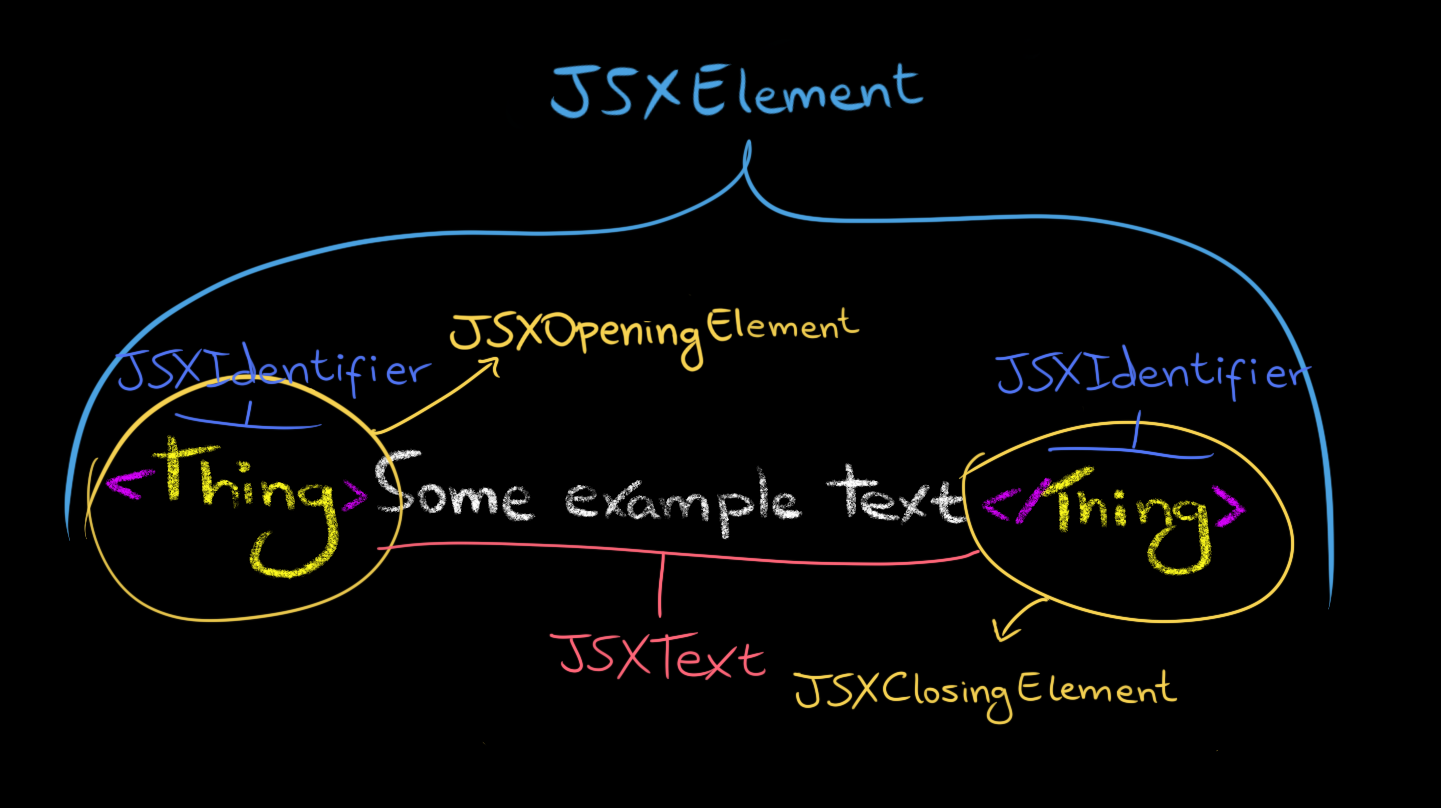 JSXElement
JSXOpeningElement
JSXIdentifier
JSXIdentifier
<Thing>Some example text</Thing>
JSXText
JSXClosingElement